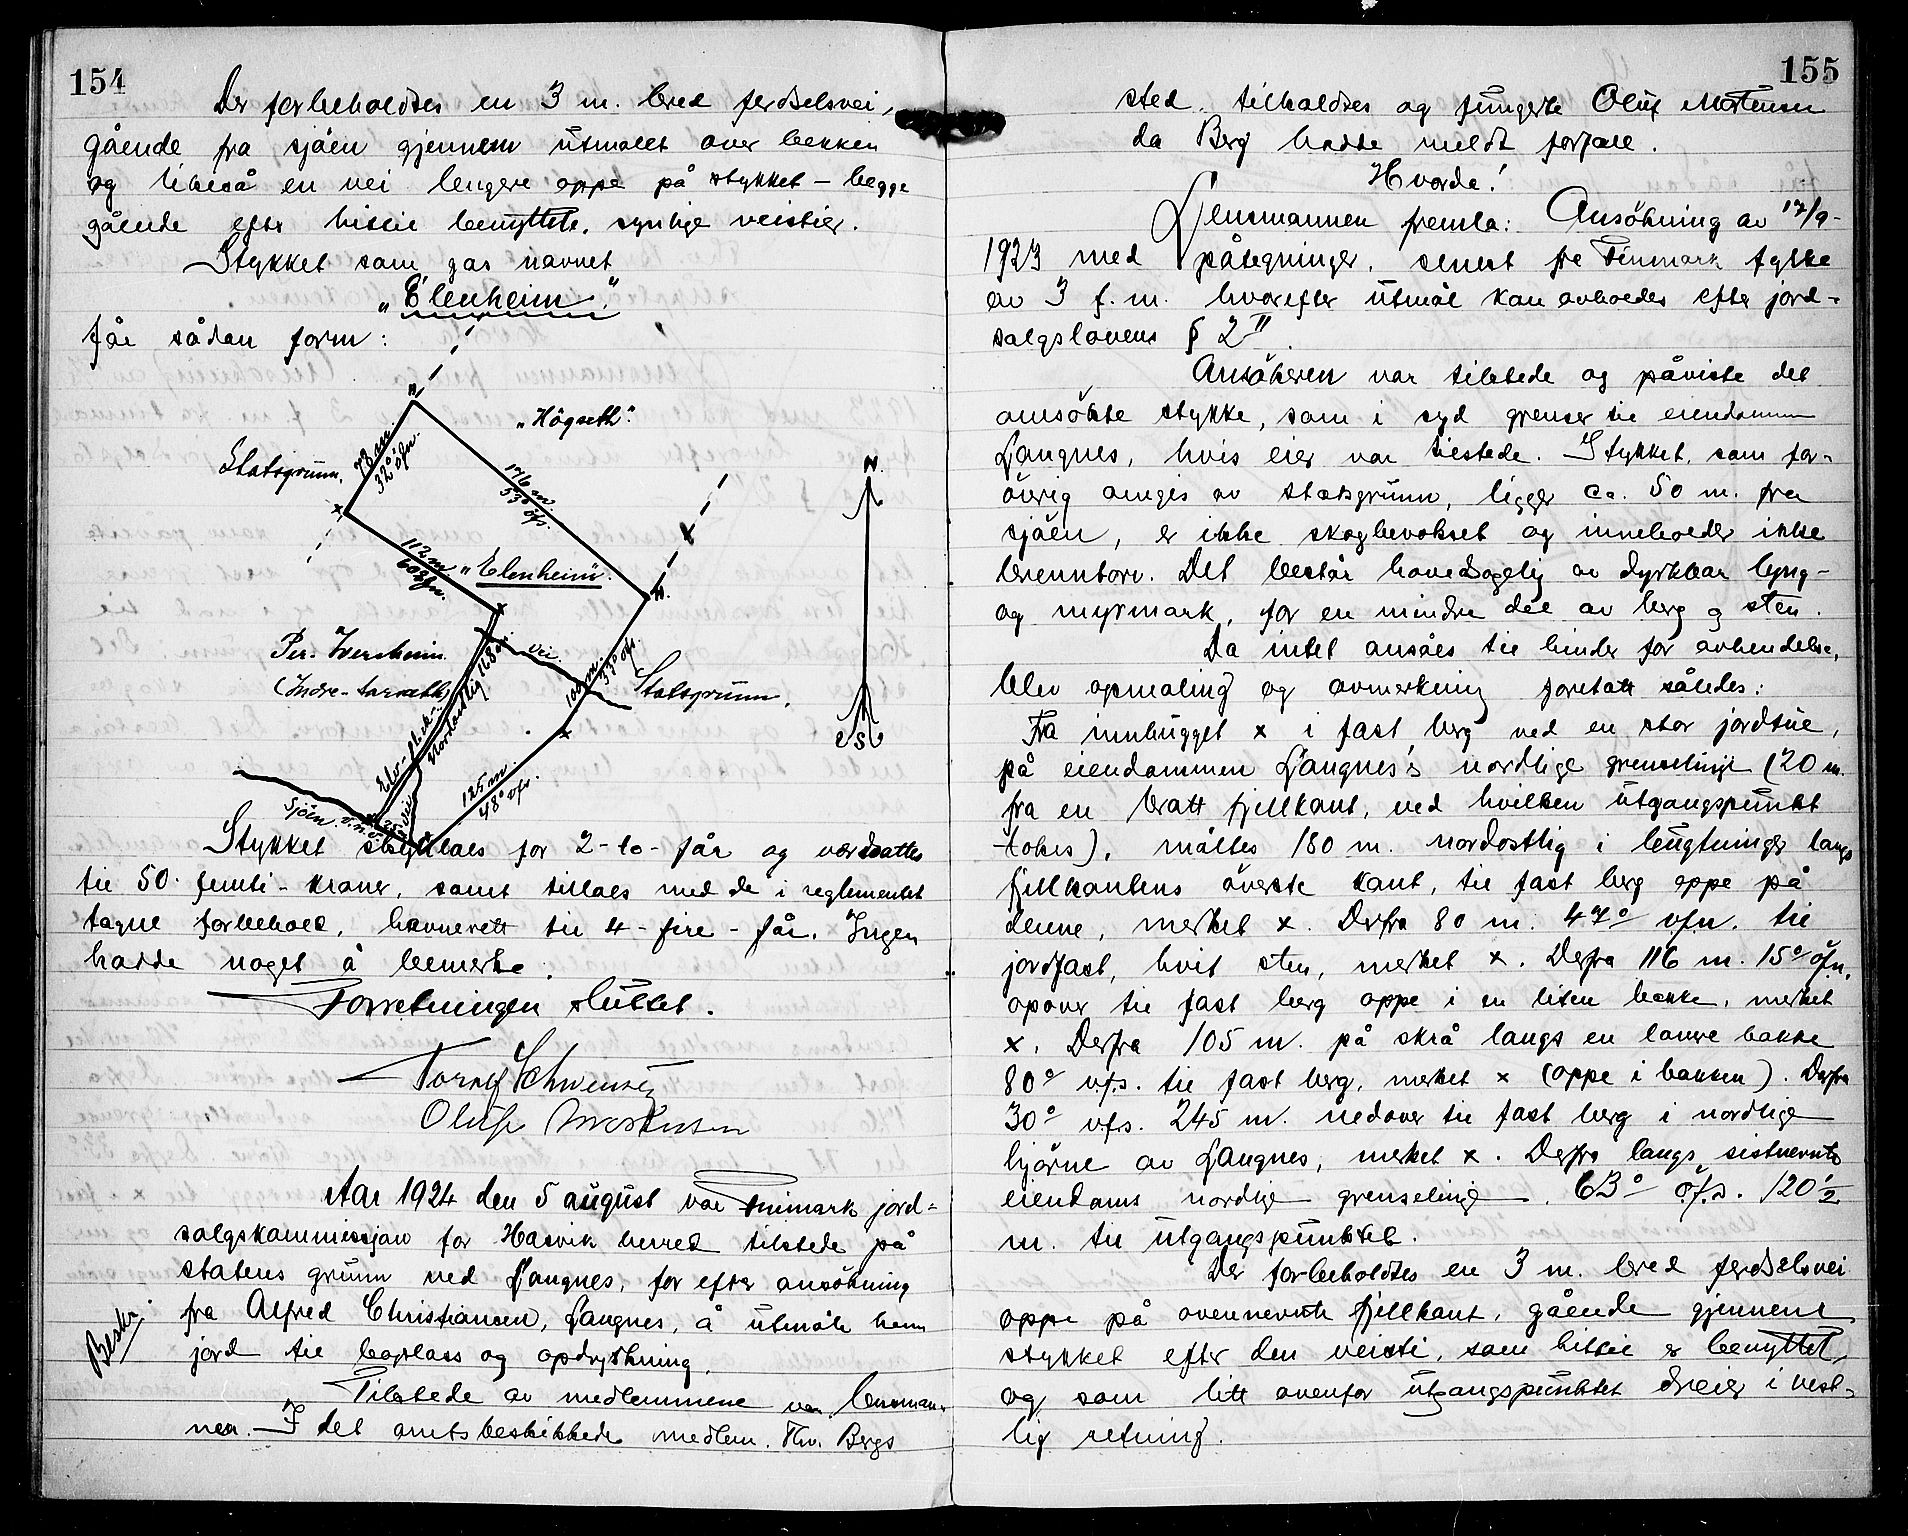 154
Der forbeholdtes en 3 m. bred ferdselsvei,
gående fra sjøen gjennem utmålet over bekken
og likeså en vei lengere oppe på stykket – begge
gående efter hittil benyttete, synlige veistier.
Stykket som gas navnet
„Elenheim".
får sådan form:
„Högseth".
Statsgrunn.
73 m.
32° öfn.
176 m.
53° öfs.
N.
112 m
60° vfn.
„Elenheim".
Per-Iversheim
(Indre-
vei.
Statsgrunn.
Nordostlig 118 m.
33° vfs.
S
125 m.
48° vfs.
Sjöen.
vei
Stykket skyldlaes for 2-to-får og værdsattes
til 50 femti-kroner, samt tillaes med de i reglementet
tagne forbehold, havnerett til 4-fire-får. Ingen
hadde noget å bemerke.
Forretningen sluttet.
Oluf Mortensen
Aar 1924 den 5 august var Finmark jord-
salgskommissjon for Hasvik herred tilstede på
statens grunn ved Langnes, for efter ansökning
fra Alfred Christiansen, Langnes, å utmåle ham
jord til boplass og opdyrkning.
Beskr.
Tilstede av medlemmene var lensman-
nen. I det amtsbeskikkede medlem. Thv. Bergs
155
sted, tilkaldtes og fungerte Oluf Mortensen
da Berg hadde meldt forfall.
Hvorda!
Lensmannen fremla: Ansökning av 17/9-
1923 med påtegninger, senest fra Finmark fylke
av 3 f. m. hvorefter utmål kan avholdes efter jord-
salgslovens § 2 II.
Ansökeren var tilstede og påviste det
ansökte stykke, som i syd grenser til eiendommen
Langnes, hvis eier var tilstede. Stykket, som for-
övrig omgis av statsgrunn, ligger ca. 50 m. fra
sjöen, er ikke skogbevokset og inneholder ikke
brenntorv. Det består hovedsagelig av dyrkbar lyng-
og myrmark, for en mindre del av berg og sten.
Da intet ansåes til hinder for avhendelse,
blev opmaling og avmerkning foretatt således:
Fra innhugget x i fast berg ved en stor jordtue,
på eiendommen Langnes's nordlige grenselinje (20 m.
fra en bratt fjellkant, ved hvilken utgangspunkt
tokes), måltes 180 m. nordostlig i bugtninger langs
fjellkantens överste kant, til fast berg oppe på
denne, merket x. Derfra 80 m. 47° vfn. til
jordfast, hvit sten, merket x. Derfra 116 m. 15° öfn.
opover til fast berg oppe i en liten bakke, merket
x. Derfra 105 m. på skrå langs en lavere bakke
80° vfs. til fast berg, merket x (oppe i bakken). Derfra
30° vfs. 245 m. nedover til fast berg i nordlige
hjörne av Langnes, merket x. Derfra langs sistnevnte
eiendoms nordlige grenselinje 63° öfs. 120½
m. til utgangspunktet.
Der forbeholdtes en 3 m. bred ferdselsvei
oppe på ovennevnte fjellkant, gående gjennem
stykket efter den veisti, som hittil er benyttet,
og som litt ovenfor utgangspunktet dreier i vest-
lig retning.